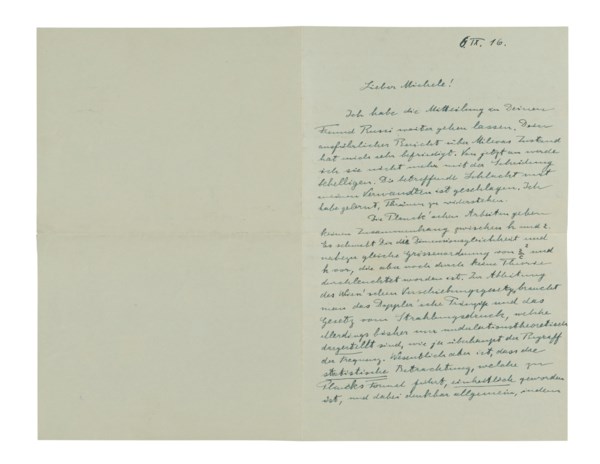 6. IX. 16.
Lieber Michele!
Ich habe die Mitteilung an Deinen
Freund Russi weiter gehen lassen. Dein
ausführlicher Bericht über Milevas Zustand
hat mich sehr befriedigt. Von jetzt an werde
ich sie nicht mehr mit der Scheidung
behelligen. Die betreffende Schlacht mit
meinen Verwandten ist geschlagen. Ich
habe gelernt, Thränen zu widerstehen.
Die Planck'schen Arbeiten geben
keinen Zusammenhang zwischen h und ε.
Es schwebt Dir die Dimensionsgleichheit und
nahezu gleiche Grössenordnung von und
h vor, die aber noch durch keine Theorie
durchleuchtet worden ist. Zur Ableitung
des Wien'schen Verschiebungsgesetzes braucht
man das Doppler'sche Prinzip und das
Gesetz vom Strahlungsdruck, welche
allerdings bisher nur undulationstheoretisch
dargestellt sind, wie ja überhaupt der Begriff
der Wesentlich aber ist, dass die
statistische Betrachtung, welche zu
Plancks Formel führt, einheitlich geworden
ist, und dabei denkbar allgemein, indem